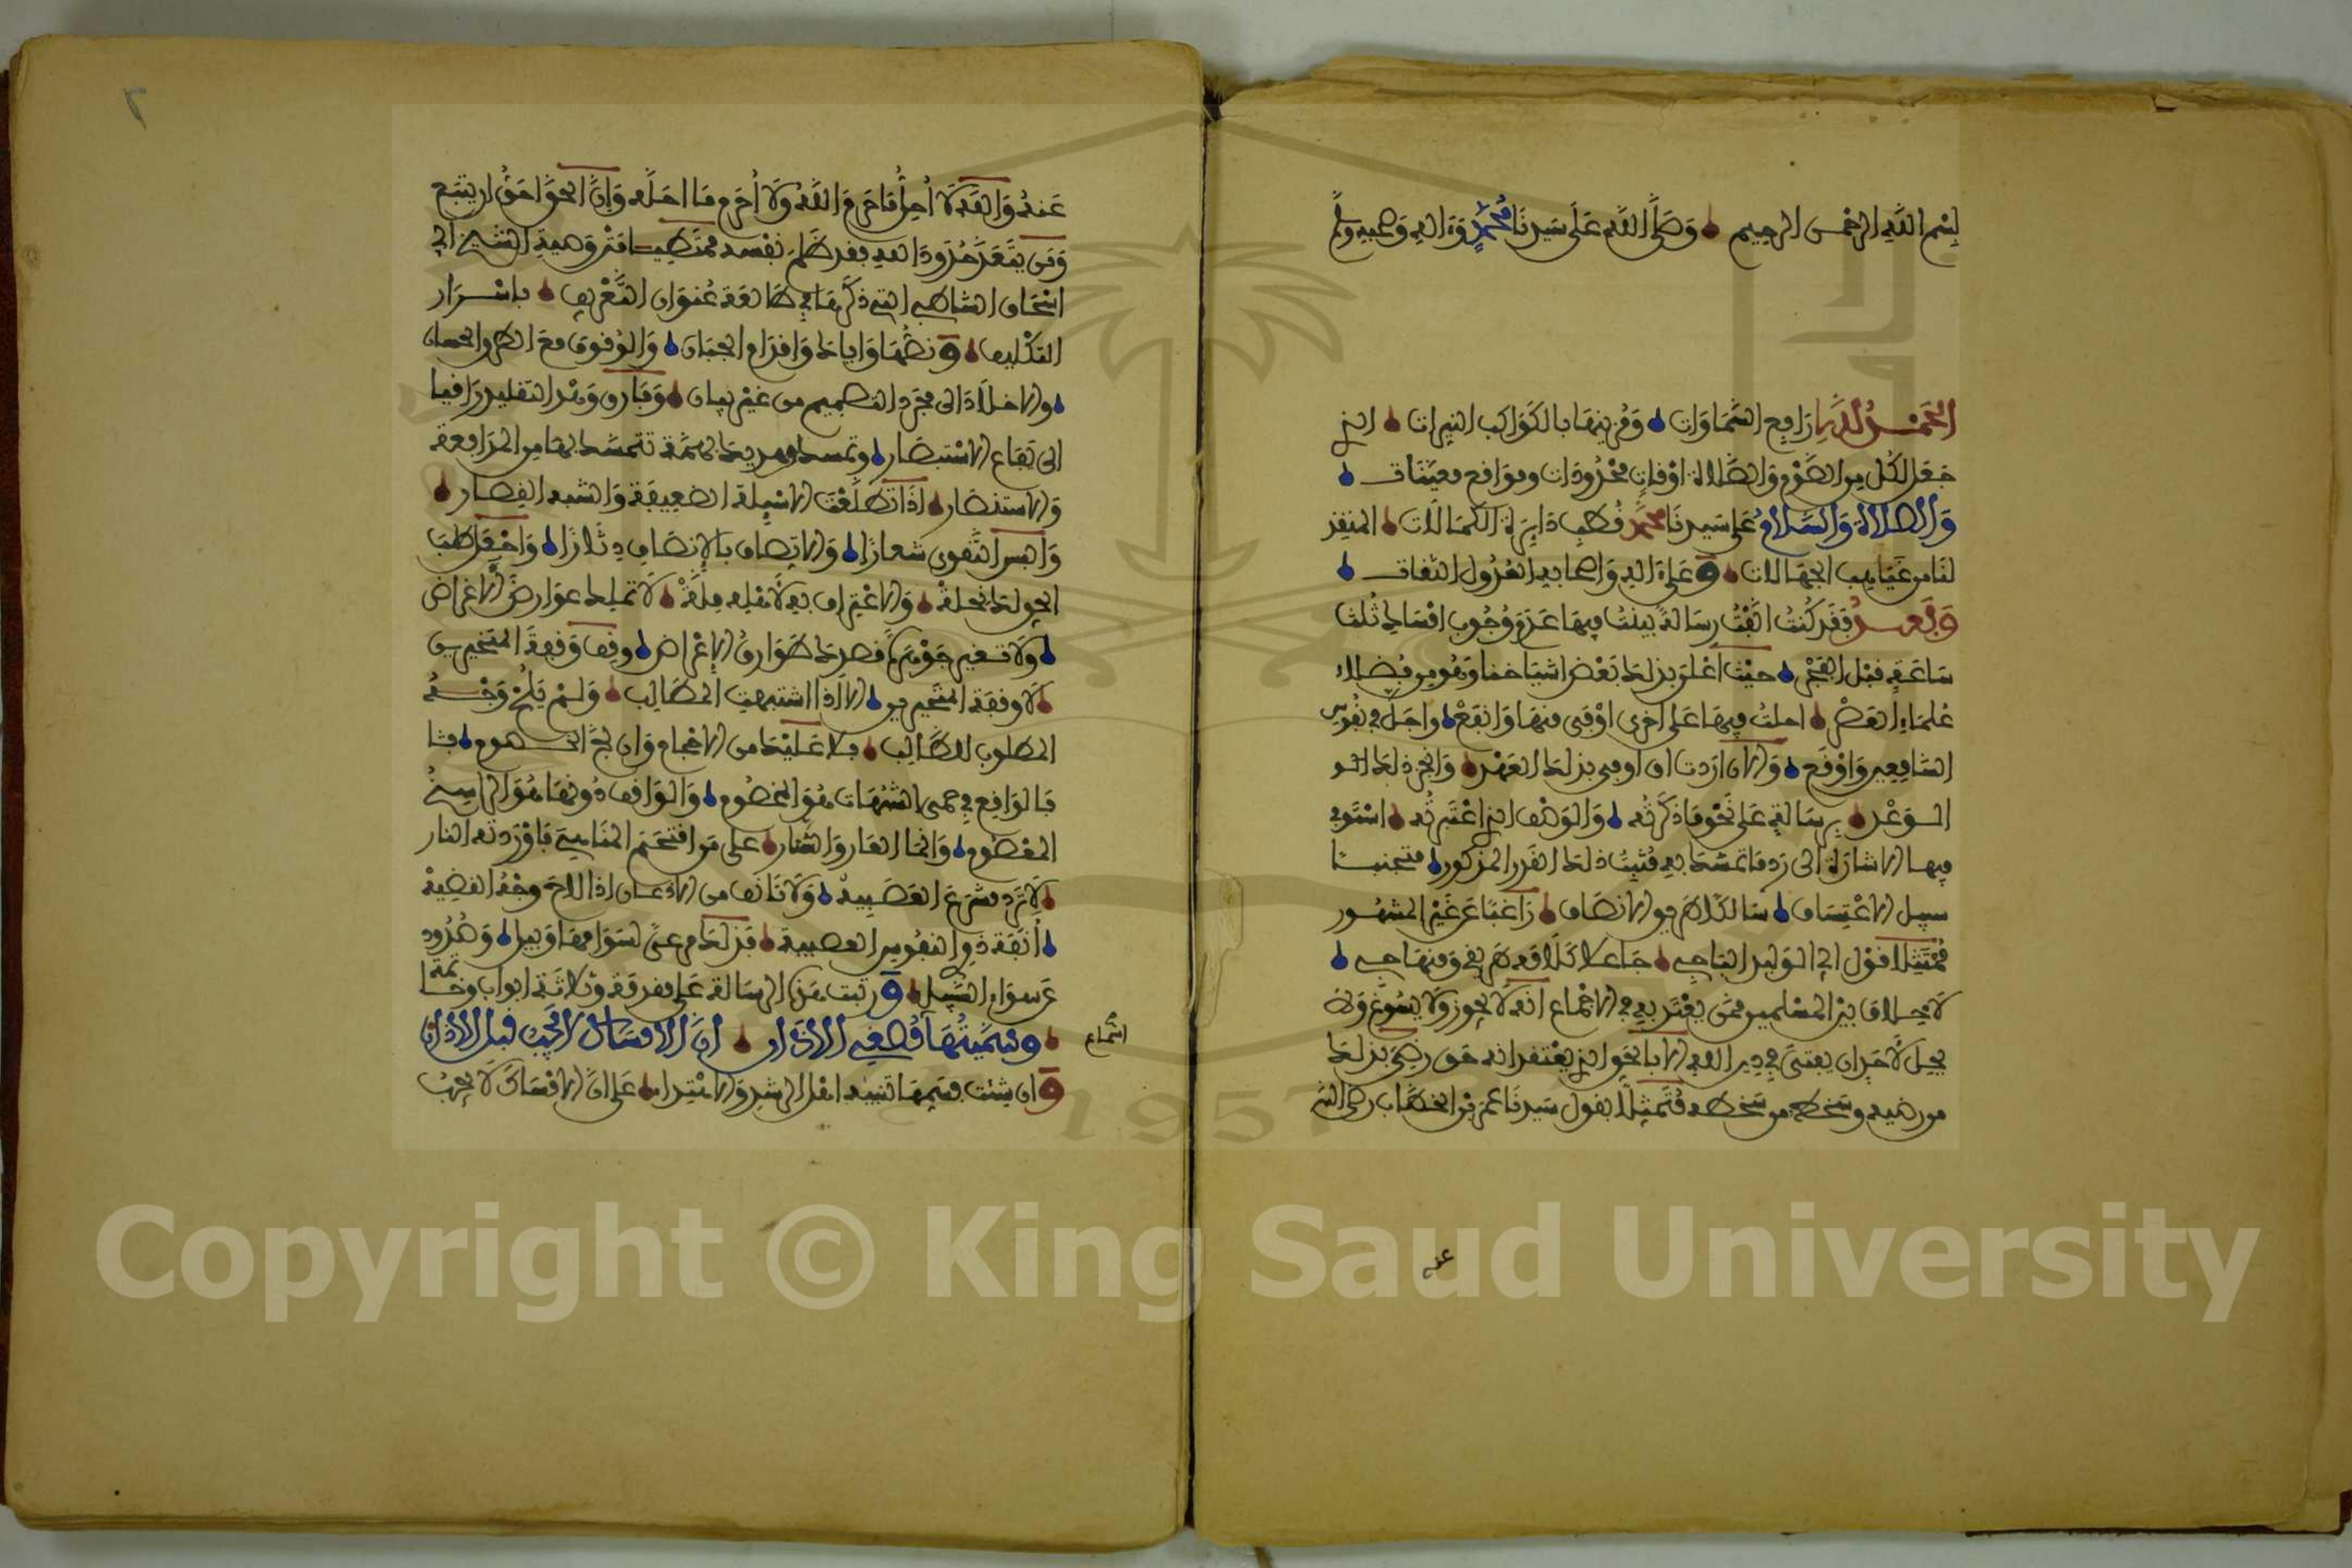 بسم الله الرحمن الرحيم وصلى الله على سيدنا محمد وءاله وصحبه وسلم
الحمد لله رافع السماوات ومزينها بالكواكب النيرات الذي
جعل لكل من الصوم والصلاة اوقات محدودات ومواقع معينات
والصلاة والسلام على سيدنا محمد قطب دايرة الكمالات المنقذ
لنا من غياهب الجهالات وعلى ءاله واصحابه العدول الثقات
وبعد فقد كنت الفت رسالة بينت فيها عدم وجوب امساك ثلث
ساعة قبل الفجر حيث اعلن بذلك بعض اشياخنا وهو من فضلاء
علماء العصر احلت فيها على اخرى اوفى منها وانفع واجل في نفوس
السامعين واوقع والان اردت ان اوفي بذلك العهد وانجز ذلك
الوعد برسالة على نحو ما ذكرته والوصف الذي اعتبرته استوفي
فيها الاشارة الى رد ما تمسك به مثبت ذلك القدر المذكور متجنبا
سبيل الاعتساف سالكا طريق الانصاف راغبا عن غير المشهور
ممتثلا قول ابي الوليد الباجي جاعلا كلامه طريقي ومنهاجي
لا خلاف بين المسلمين ممن يعتد به في الاجماع انه لا يجوز ولا يسوغ ولا
يحل لاحد ان يفتي في دين الله الا بالحق الذي يعتقد انه حق رضي بذلك
من رضيه وسخطه من سخطه متمثلا بقول سيدنا عمر بن الخطاب رضي الله
عنه
عنه والله لا احل ما حرم الله ولا احرم ما احله وان الحق احق ان يتبع
ومن يتعد حدود الله فقد ظلم نفسه ممتطيا متن وصية الشيخ ابي
اسحاق الشاطبي التي ذكرها في طالعة عنوان التعريف باسرار
التكليف ونصها واياك واقدام الجبان والوقوف مع الطرق الحسان
والاخلاد الى مجرد التصميم من غير بيان وفارق وهد التقليد راقيا
الى يفاع الاستبصار وتمسك من هديك بهمة تتمسك بها من المدافعة
والاستنصار اذا تطلعت الاسئلة الضعيفة والشبه القصار
والبس التقوى شعارا والاتصاف بالانصاف دثارا واجعل طلب
الحق لك نحلة والاعتراف به لاهله ملة لا تملك عوارض الاغراض
ولا تغير جوهرة قصدك طوارق الاعراض وقف وقفة المتخيرين
لا وقفة المتحيرين الا اذا اشتبهت المطالب ولم يلح وجه
المطلوب للطالب فلا عليك من الاحجام وان لج الخصوم
فالواقع في حمى الشبهات هو المخصوم والواقف دونها هو الراسخ
المعصوم وانما العار والشنار على من اقتحم المناهي فاوردته النار
لا ترد مشرع العصبية ولا تانف من الاذعان اذا لاح وجه القضية
انفة ذوي النفوس العصية فذلك مرعى لسوامها وبيل وصدود
عن سواء السبيل ورتبت هذه الرسالة على مقدمة وثلاثة ابواب وخاتمة
اسماع
وسميتها قطعي الاذان ان الامساك لا يجب قبل الاذان
وان شئت فسمها تنبيه اهل الرشد والاهتداء على ان الامساك لا يجب